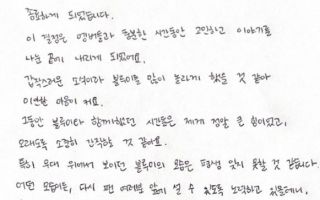 종료하게 되었습니다.
이 결정은 멤버들과 충분한 시간동안 고민하고 이야기를
나눈 끝에 내리게 되었어요.
갑작스러운 소식이라 블루이들 많이 놀라게 했을 것 같아
미안한 마음이 커요.
그동안 블루이와 함께했던 시간들은 제게 정말 큰 힘이었고,
오래도록 소중히 간직하게 될 것 같아요.
특히 무대 위에서 보이던 블루이의 모습은 평생 잊지 못할 것 같습니다.
어떤 모습이든, 다시 팬 여러분 앞에 설 수 있도록 노력하고 있을테니,